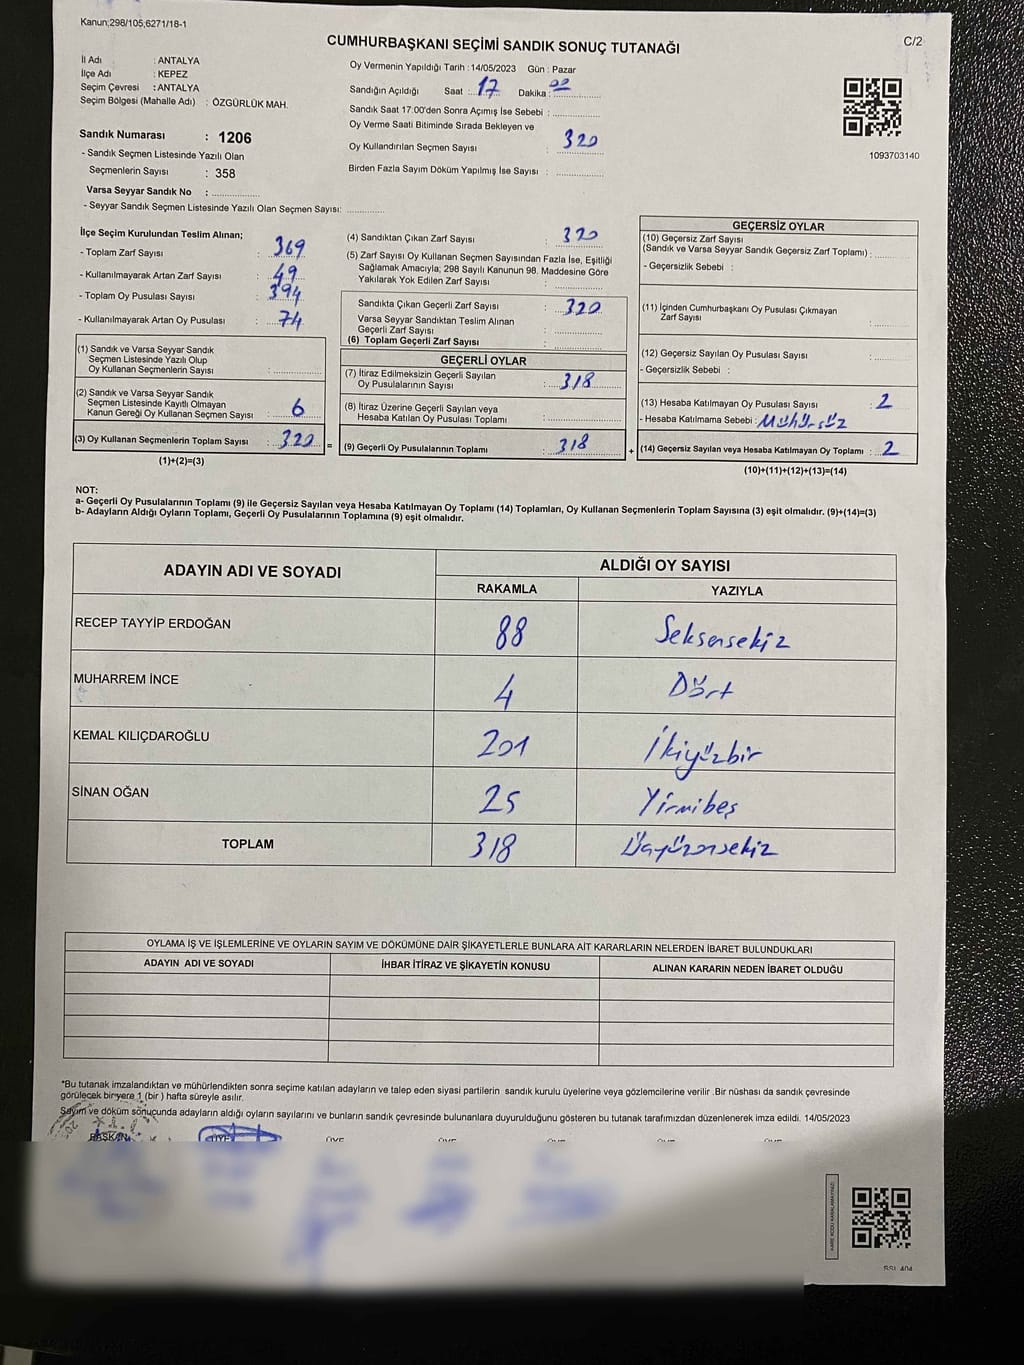 Kanun;298/105,6271/18-1
C/2
CUMHURBAŞKANI SEÇİMİ SANDIK SONUÇ TUTANAĞI
İl Adı : ANTALYA
İlçe Adı : KEPEZ
Seçim Çevresi : ANTALYA
Seçim Bölgesi (Mahalle Adı) : ÖZGÜRLÜK MAH.
Sandık Numarası : 1206
- Sandık Seçmen Listesinde Yazılı Olan
Seçmenlerin Sayısı : 358
Varsa Seyyar Sandık No :
- Seyyar Sandık Seçmen Listesinde Yazılı Olan Seçmen Sayısı:
Oy Vermenin Yapıldığı Tarih : 14/05/2023 Gün : Pazar
Sandığın Açıldığı Saat : 17 Dakika : 00
Sandık Saat 17:00'den Sonra Açımış İse Sebebi :
Oy Verme Saati Bitiminde Sırada Bekleyen ve
Oy Kullandırılan Seçmen Sayısı : 320
Birden Fazla Sayım Döküm Yapılmış İse Sayısı :
1093703140
İlçe Seçim Kurulundan Teslim Alınan;
- Toplam Zarf Sayısı : 369
- Kullanılmayarak Artan Zarf Sayısı : 49
- Toplam Oy Pusulası Sayısı : 394
- Kullanılmayarak Artan Oy Pusulası : 74
(1) Sandık ve Varsa Seyyar Sandık
Seçmen Listesinde Yazılı Olup
Oy Kullanan Seçmenlerin Sayısı :
(2) Sandık ve Varsa Seyyar Sandık
Seçmen Listesinde Kayıtlı Olmayan
Kanun Gereği Oy Kullanan Seçmen Sayısı : 6
(3) Oy Kullanan Seçmenlerin Toplam Sayısı : 320 =
(1)+(2)=(3)
(4) Sandıktan Çıkan Zarf Sayısı : 320
(5) Zarf Sayısı Oy Kullanan Seçmen Sayısından Fazla İse, Eşitliği
Sağlamak Amacıyla; 298 Sayılı Kanunun 98. Maddesine Göre
Yakılarak Yok Edilen Zarf Sayısı :
Sandıkta Çıkan Geçerli Zarf Sayısı : 320
Varsa Seyyar Sandıktan Teslim Alınan
Geçerli Zarf Sayısı :
(6) Toplam Geçerli Zarf Sayısı :
GEÇERLİ OYLAR
(7) İtiraz Edilmeksizin Geçerli Sayılan
Oy Pusulalarının Sayısı : 318
(8) İtiraz Üzerine Geçerli Sayılan veya
Hesaba Katılan Oy Pusulası Toplamı :
(9) Geçerli Oy Pusulalarının Toplamı : 318 +
GEÇERSİZ OYLAR
(10) Geçersiz Zarf Sayısı
(Sandık ve Varsa Seyyar Sandık Geçersiz Zarf Toplamı) :
- Geçersizlik Sebebi :
(11) İçinden Cumhurbaşkanı Oy Pusulası Çıkmayan
Zarf Sayısı :
(12) Geçersiz Sayılan Oy Pusulası Sayısı :
- Geçersizlik Sebebi :
(13) Hesaba Katılmayan Oy Pusulası Sayısı : 2
- Hesaba Katılmama Sebebi : Mühürsüz
(14) Geçersiz Sayılan veya Hesaba Katılmayan Oy Toplamı : 2
(10)+(11)+(12)+(13)=(14)
NOT:
a- Geçerli Oy Pusulalarının Toplamı (9) ile Geçersiz Sayılan veya Hesaba Katılmayan Oy Toplamı (14) Toplamları, Oy Kullanan Seçmenlerin Toplam Sayısına (3) eşit olmalıdır. (9)+(14)=(3)
b- Adayların Aldığı Oyların Toplamı, Geçerli Oy Pusulalarının Toplamına (9) eşit olmalıdır.
ADAYIN ADI VE SOYADI
ALDIĞI OY SAYISI
RAKAMLA YAZIYLA
RECEP TAYYİP ERDOĞAN 88 Seksensekiz
MUHARREM İNCE 4 Dört
KEMAL KILIÇDAROĞLU 201 İkiyüzbir
SİNAN OĞAN 25 Yirmibeş
TOPLAM 318 Üçyüzonsekiz
OYLAMA İŞ VE İŞLEMLERİNE VE OYLARIN SAYIM VE DÖKÜMÜNE DAİR ŞİKAYETLERLE BUNLARA AİT KARARLARIN NELERDEN İBARET BULUNDUKLARI
ADAYIN ADI VE SOYADI İHBAR İTİRAZ VE ŞİKAYETİN KONUSU ALINAN KARARIN NEDEN İBARET OLDUĞU
*Bu tutanak imzalandıktan ve mühürlendikten sonra seçime katılan adayların ve talep eden siyasi partilerin sandık kurulu üyelerine veya gözlemcilerine verilir .Bir nüshası da sandık çevresinde
görülecek bir yere 1 (bir ) hafta süreyle asılır.
Sayım ve döküm sonucunda adayların aldığı oyların sayılarını ve bunların sandık çevresinde bulunanlara duyurulduğunu gösteren bu tutanak tarafımızdan düzenlenerek imza edildi. 14/05/2023
BAŞKAN ÜYE ÜYE ÜYE